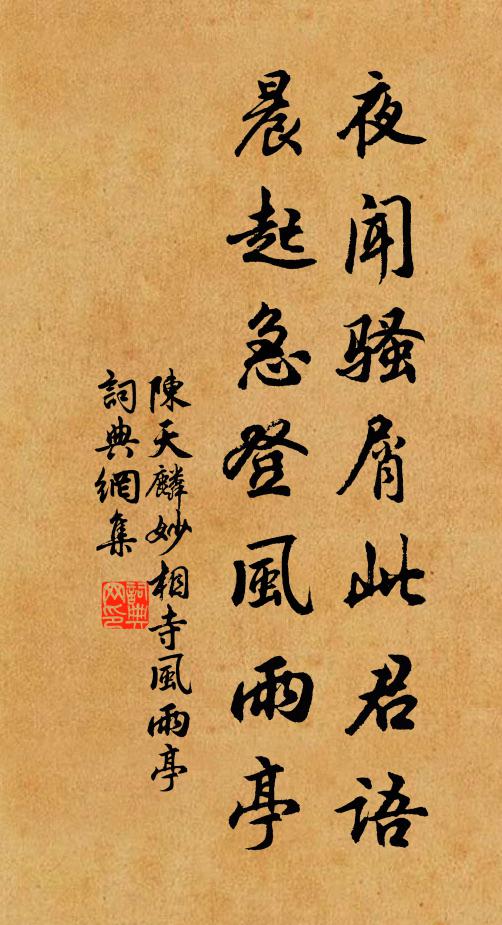 夜聞騷屑此君語
晨起急登風雨亭
陳天麟妙相寺風雨亭
詞典網集
詞典网印